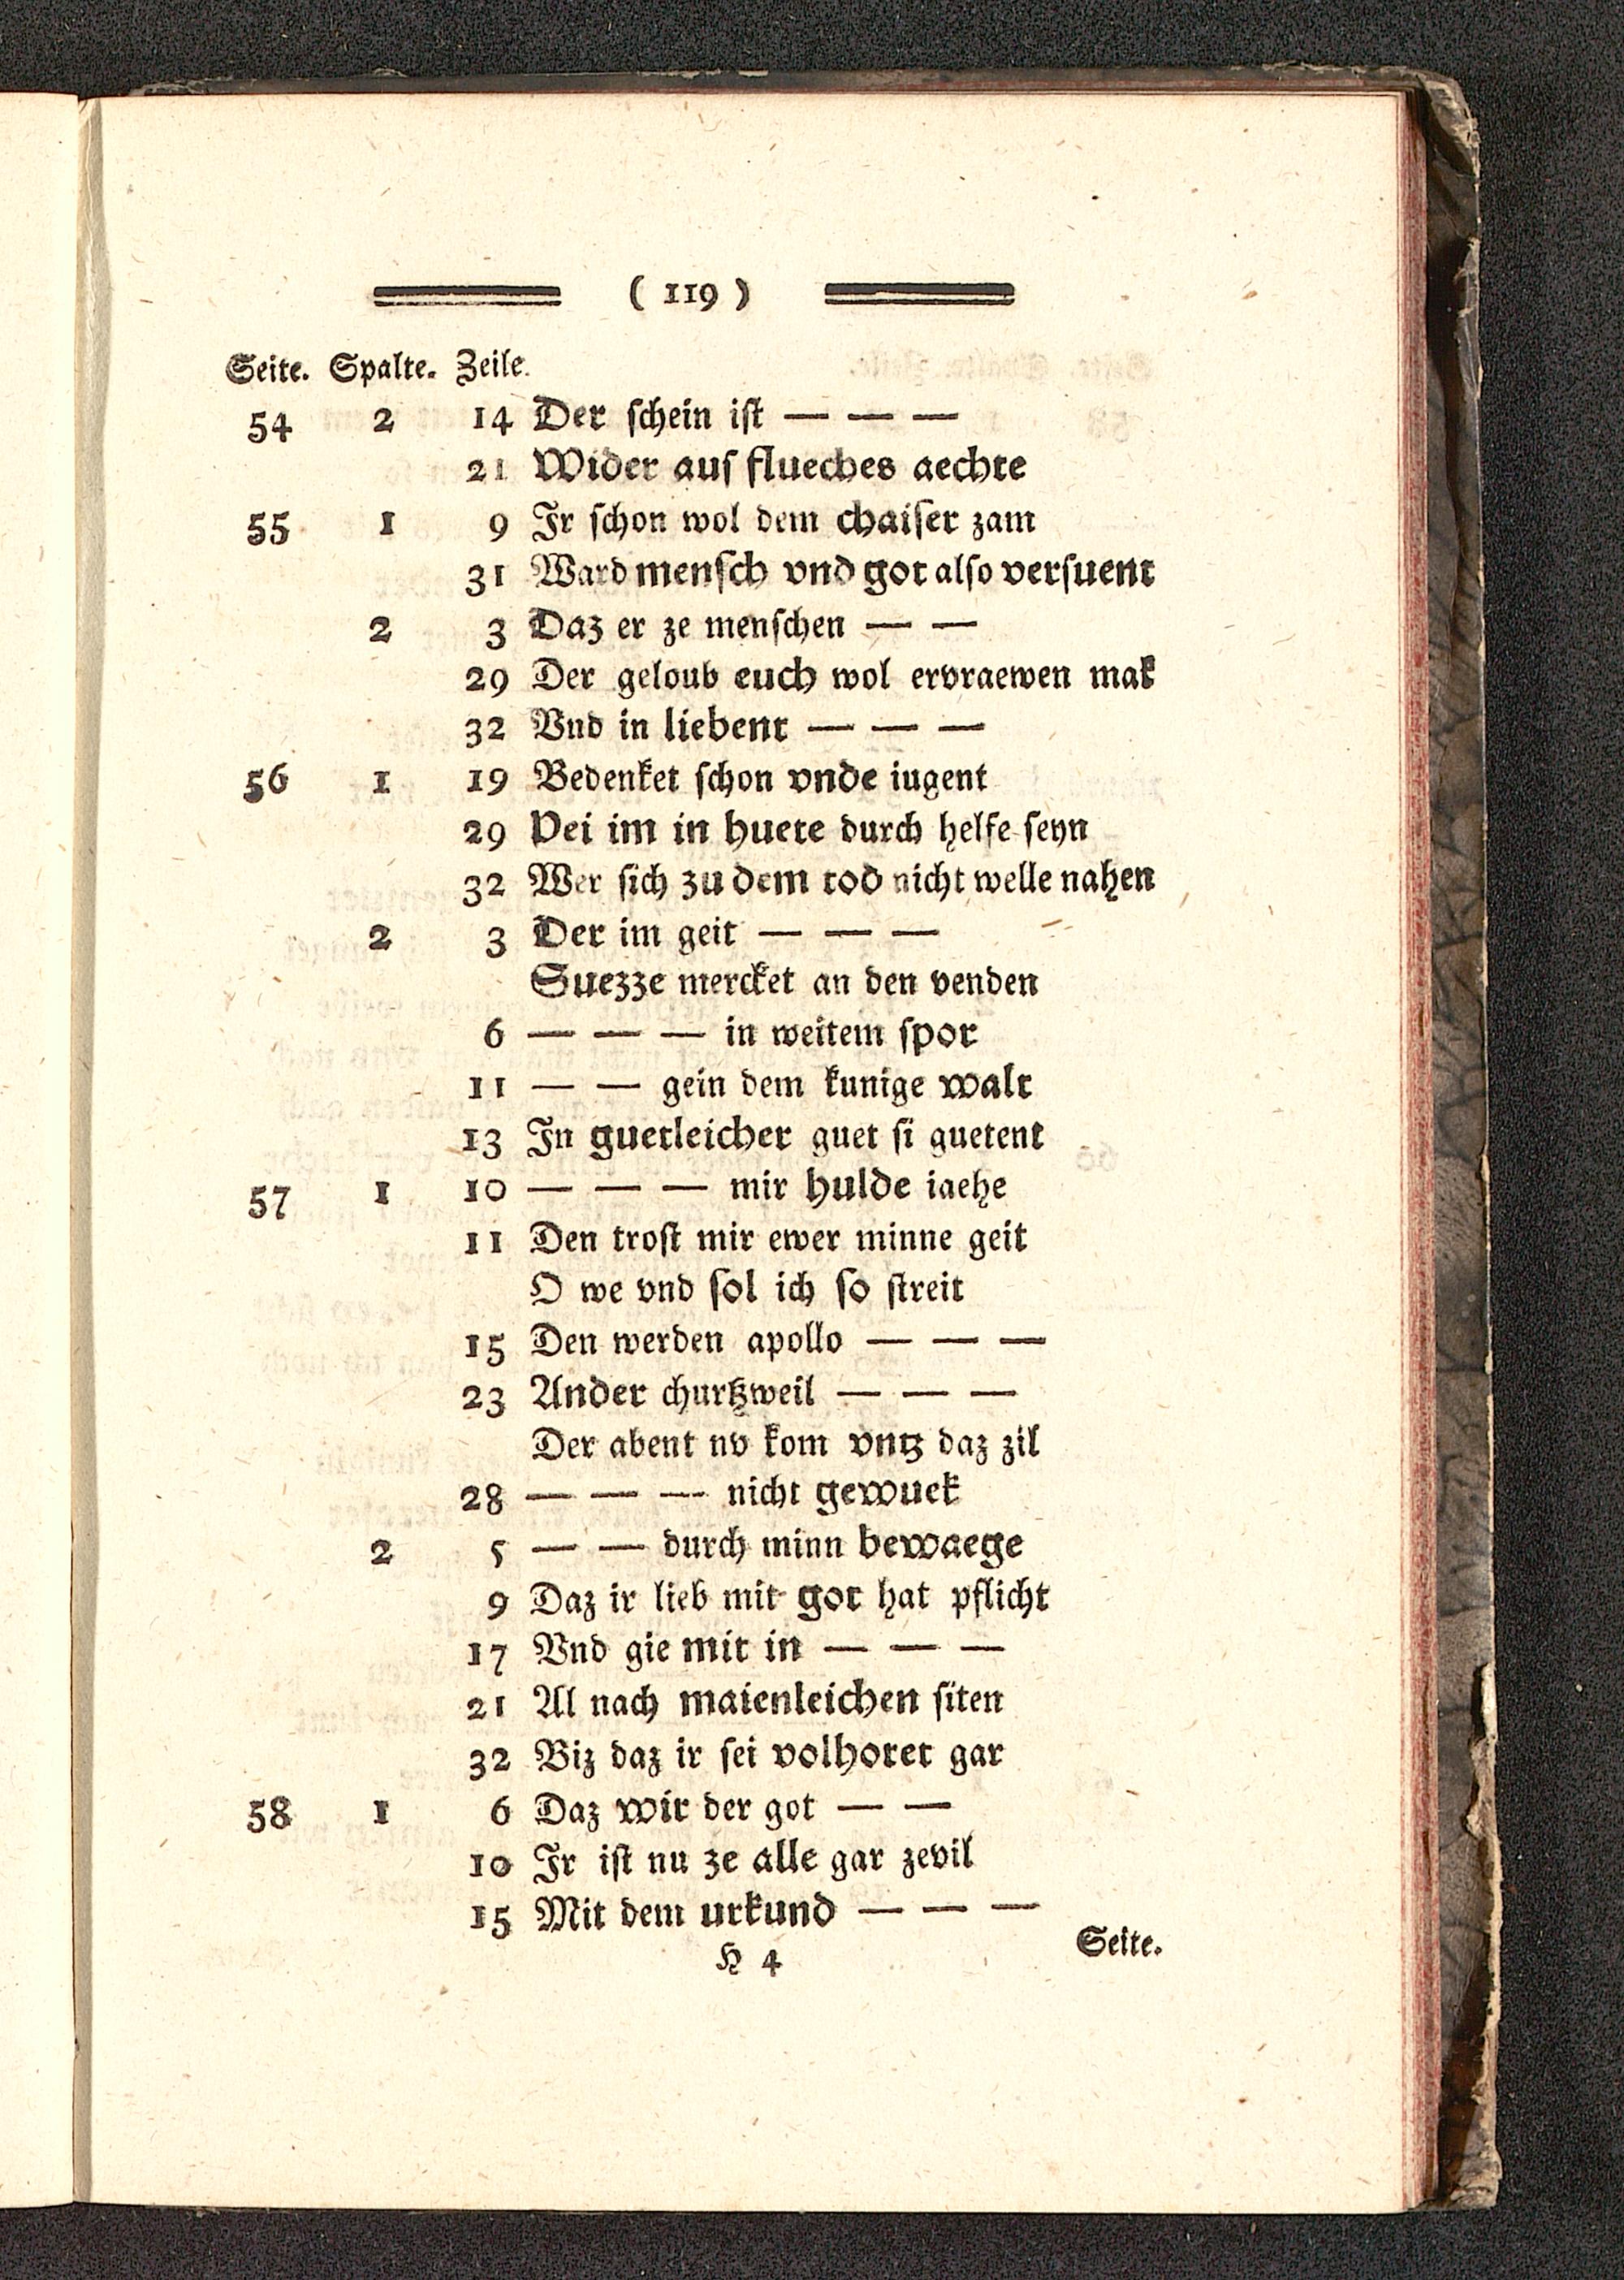 ( 119 )
Seite. Spalte. Zeile.
54 2 14 Der ſchein iſt — — —
21 Wider auſ flueches aechte
55 1 9 Ir ſchon wol dem chaiſer zam
31 Ward menſch vnd got alſo verſuent
2 3 Daz er ze menſchen — —
29 Der geloub euch wol ervraewen mak
32 Vnd in liebent — — —
56 1 19 Bedenket ſchon vnde iugent
29 Pei im in huete durch helfe ſeyn
32 Wer ſich zu dem tod nicht welle nahen
2 3 Der im geit — — —
Suezze mercket an den venden
6 — — — in weitem ſpor
11 — — gein dem kunige walt
13 In guetleicher guet ſi guetent
57 1 10 — — — mir hulde iaehe
11 Den troſt mir ewer minne geit
O we vnd ſol ich ſo ſtreit
15 Den werden apollo — — —
23 Ander churtzweil — — —
Der abent nv kom vntz daz zil
28 — — — nicht gewuek
2 5 — — durch minn bewaege
9 Daz ir lieb mit got hat pflicht
17 Vnd gie mit in — — —
21 Al nach maienleichen ſiten
32 Biz daz ir ſei volhoret gar
58 1 6 Daz wir der got — —
10 Ir iſt nu ze alle gar zevil
15 Mit dem urkund — — —
H 4 Seite.